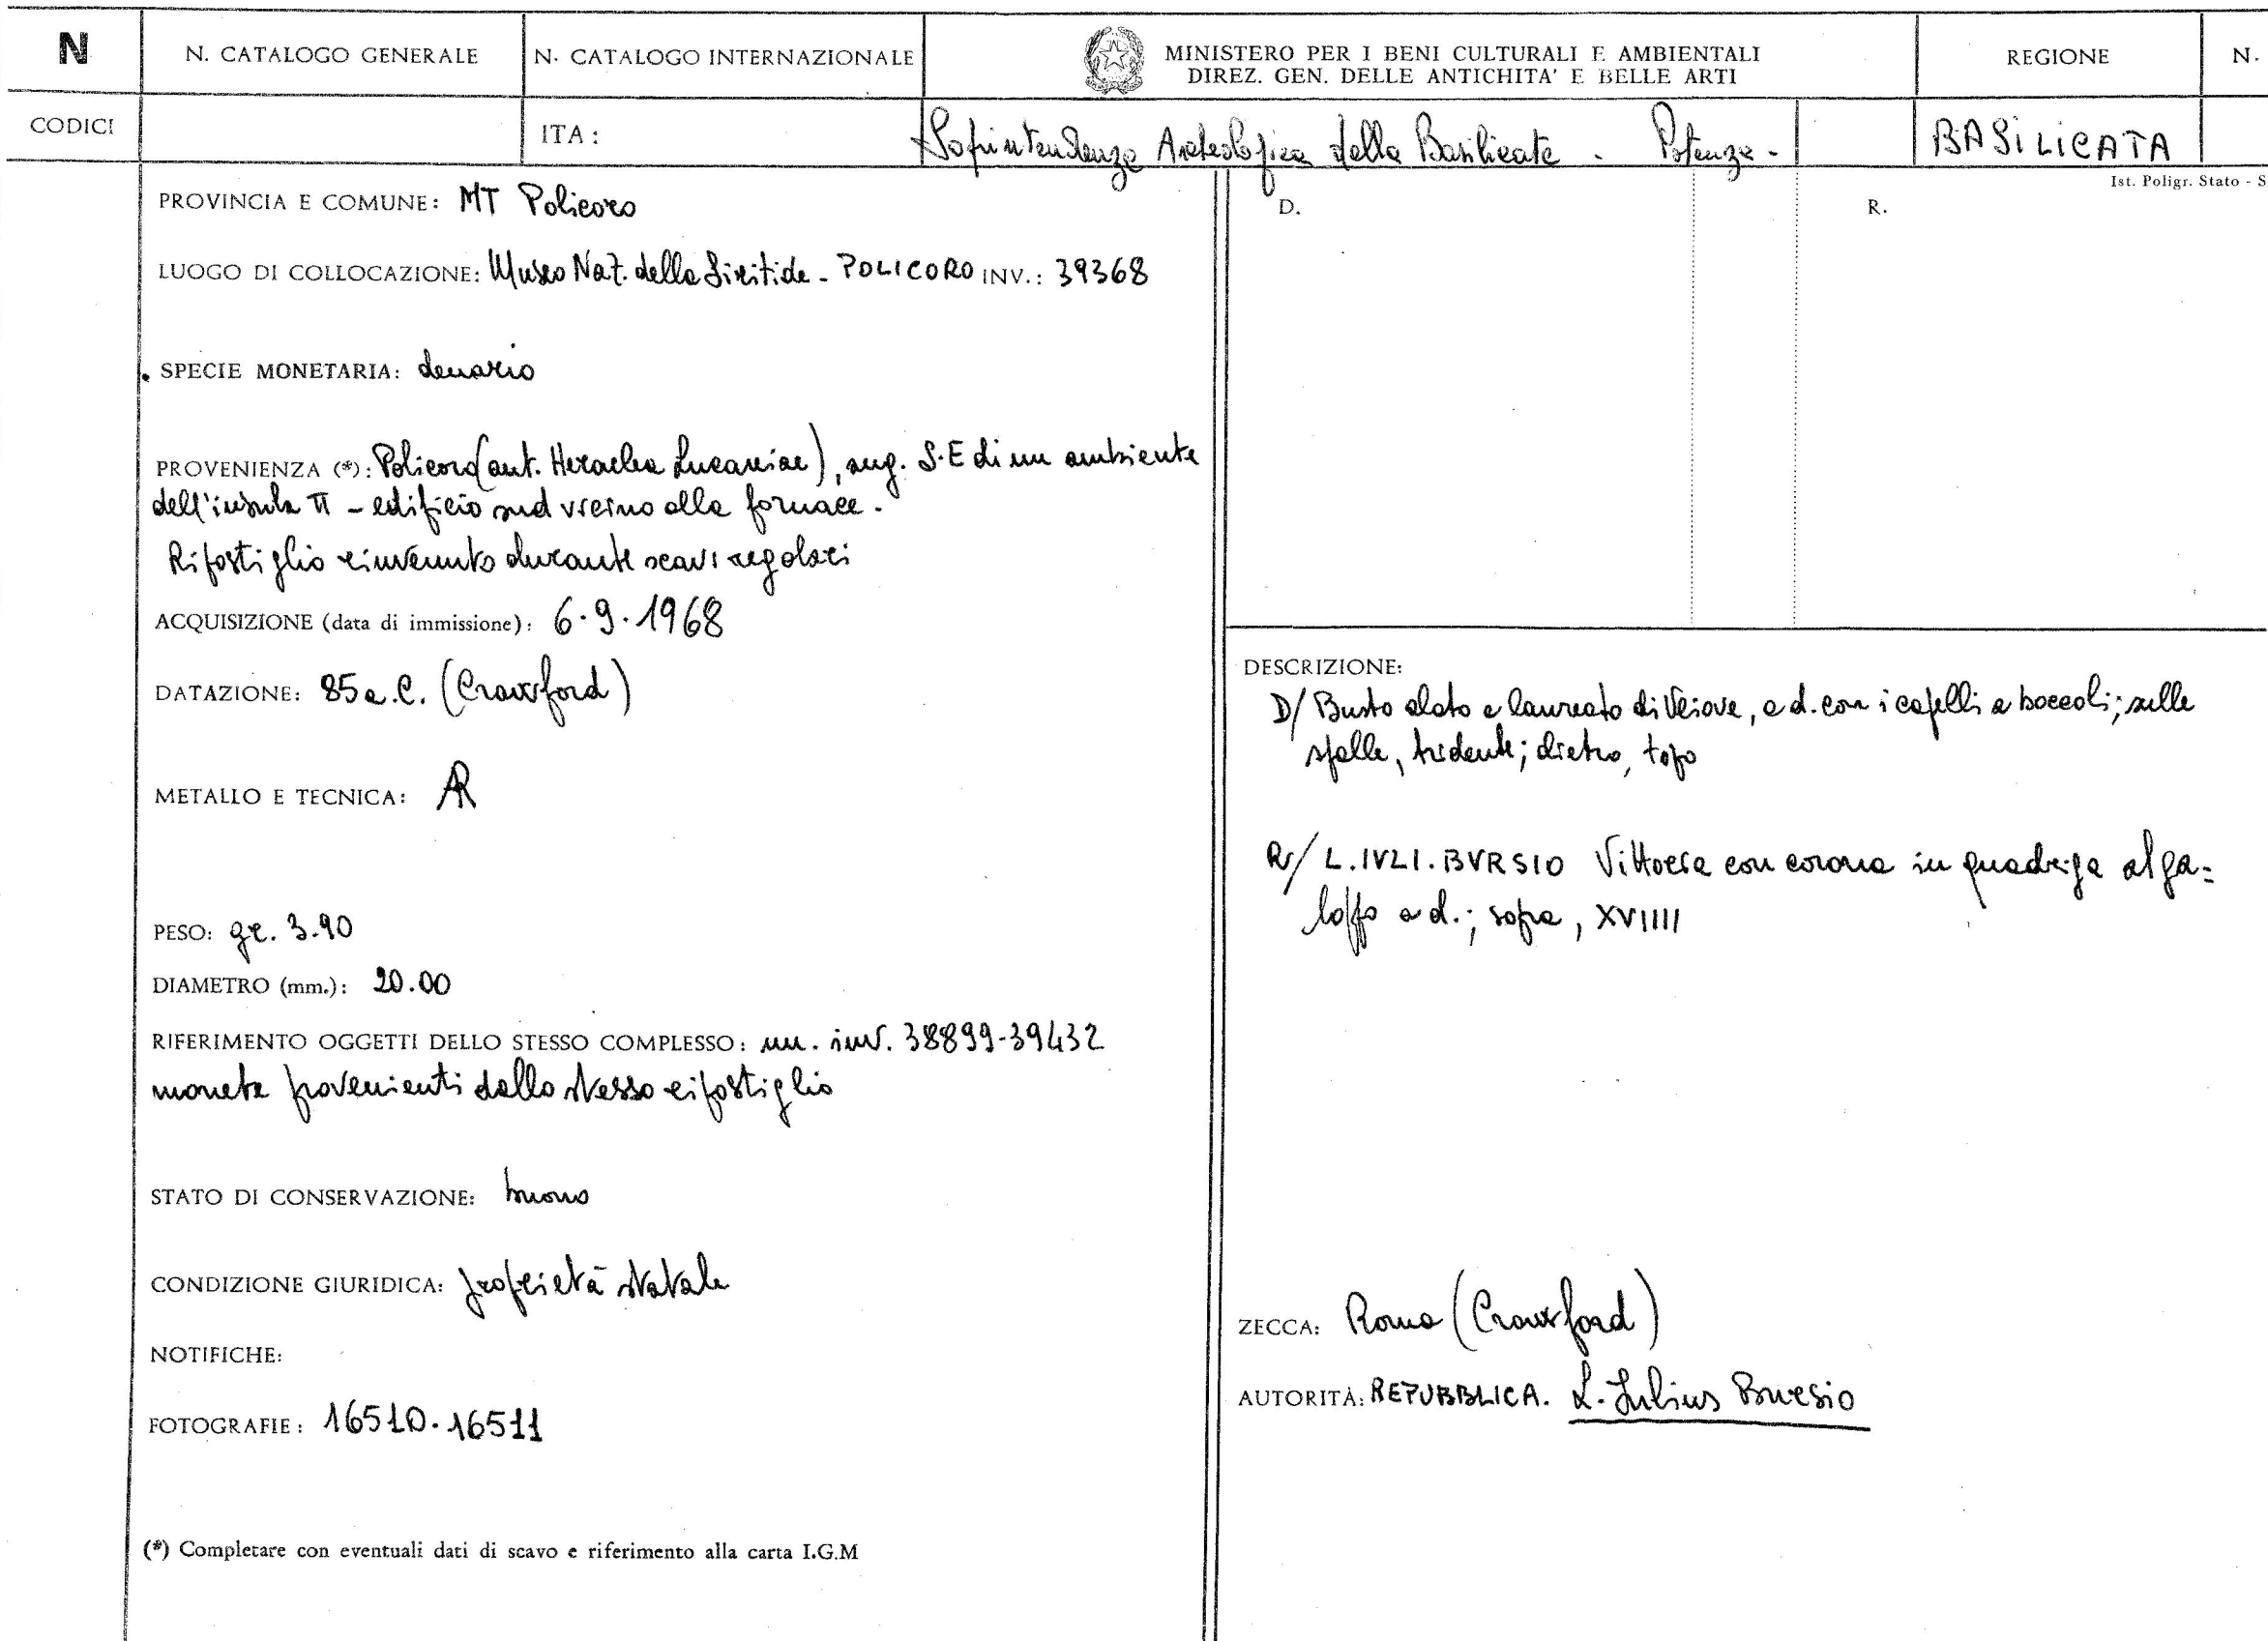 N
N. CATALOGO GENERALE
N. CATALOGO INTERNAZIONALE
MINISTERO PER I BENI CULTURALI E AMBIENTALI
DIREZ. GEN. DELLE ANTICHITA' E BELLE ARTI
REGIONE
N.
CODICI
ITA:
Soprintendenza Archeologica della Basilicata - Potenza -
BASILICATA
Ist. Poligr. Stato - S
PROVINCIA E COMUNE: MT Policoro
LUOGO DI COLLOCAZIONE: Museo Naz. della Siritide - POLICORO INV.: 39368
SPECIE MONETARIA: denario
PROVENIENZA (*): Policoro (ant. Heraclea Lucaniae), ang. S-E di un ambiente
dell'insula II - edificio sud vicino alla fornace.
Ripostiglio rinvenuto durante scavi regolari
ACQUISIZIONE (data di immissione): 6.9.1968
DATAZIONE: 85 a.C. (Crawford)
METALLO E TECNICA: AR
PESO: gr. 3.90
DIAMETRO (mm.): 20.00
RIFERIMENTO OGGETTI DELLO STESSO COMPLESSO: nn. inv. 38899-39432
monete provenienti dallo stesso ripostiglio
STATO DI CONSERVAZIONE: buono
CONDIZIONE GIURIDICA: proprietà statale
NOTIFICHE:
FOTOGRAFIE: 16510-16511
(*) Completare con eventuali dati di scavo e riferimento alla carta I.G.M
D.
R.
DESCRIZIONE:
D/ Busto alato e laureato di Veiove, a d. con i capelli a boccoli; sulle
spalle, tridente; dietro, topo
R/ L.IVLI.BVRSIO Vittoria con corona in quadriga al ga=
loppo a d.; sopra, XVIIII
ZECCA: Roma (Crawford)
AUTORITÀ: REPUBBLICA. L. Julius Bursio